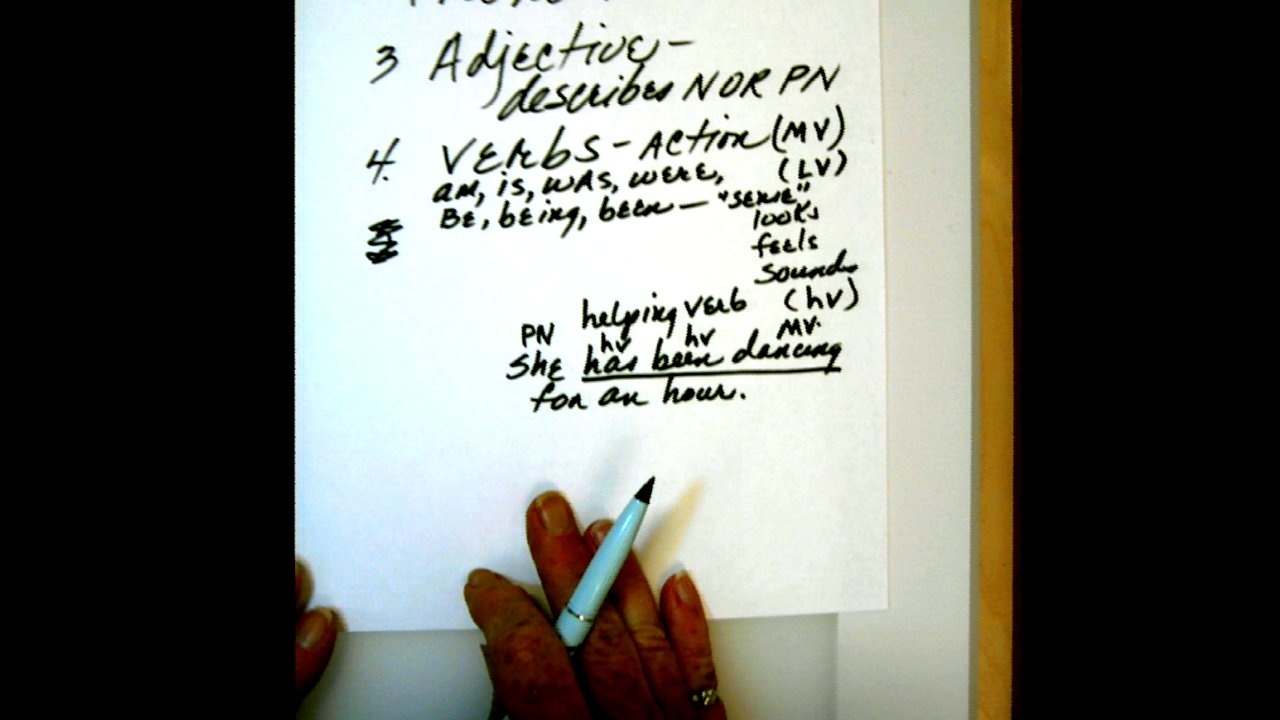 3 Adjective -
describes N OR PN
4. VERbS - ACtion (MV)
am, is, wAs, were, (LV)
BE, being, been — "sense"
looks
feels
sounds
helping verb (hv)
PN hv hv MV.
She has been dancing
for an hour.